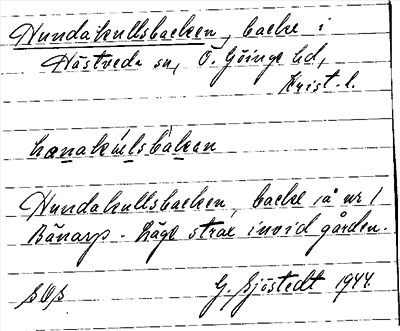 Hundakullsbacken, backe i
Hästveda sn, Ö. Göinge hd,
Krist. l.
hɷnakulsbakan
Hundakullsbacken, backe å nr 1
Bänarp. Låg strax invid gården.
G. Sjöstedt 1944.